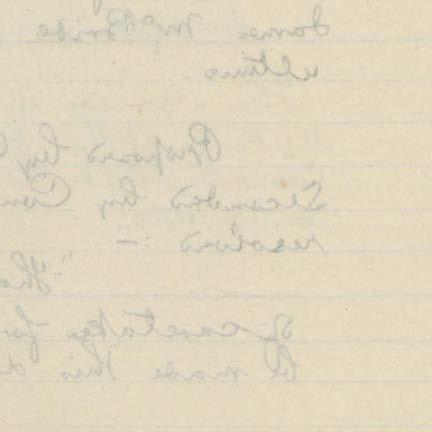 James McBride
ultimo
Proposed by
Seconded by Coun
resolved :-
"Tha
of caretaker for
be made this d